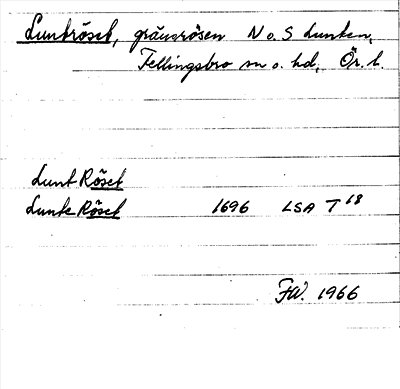 Luntröset, gränsrösen N o. S Lunken,
Fellingsbro sn o. hd, Ör. l.
Lunt Röset
Lunte Röset 1696 LSA T 18
FW. 1966